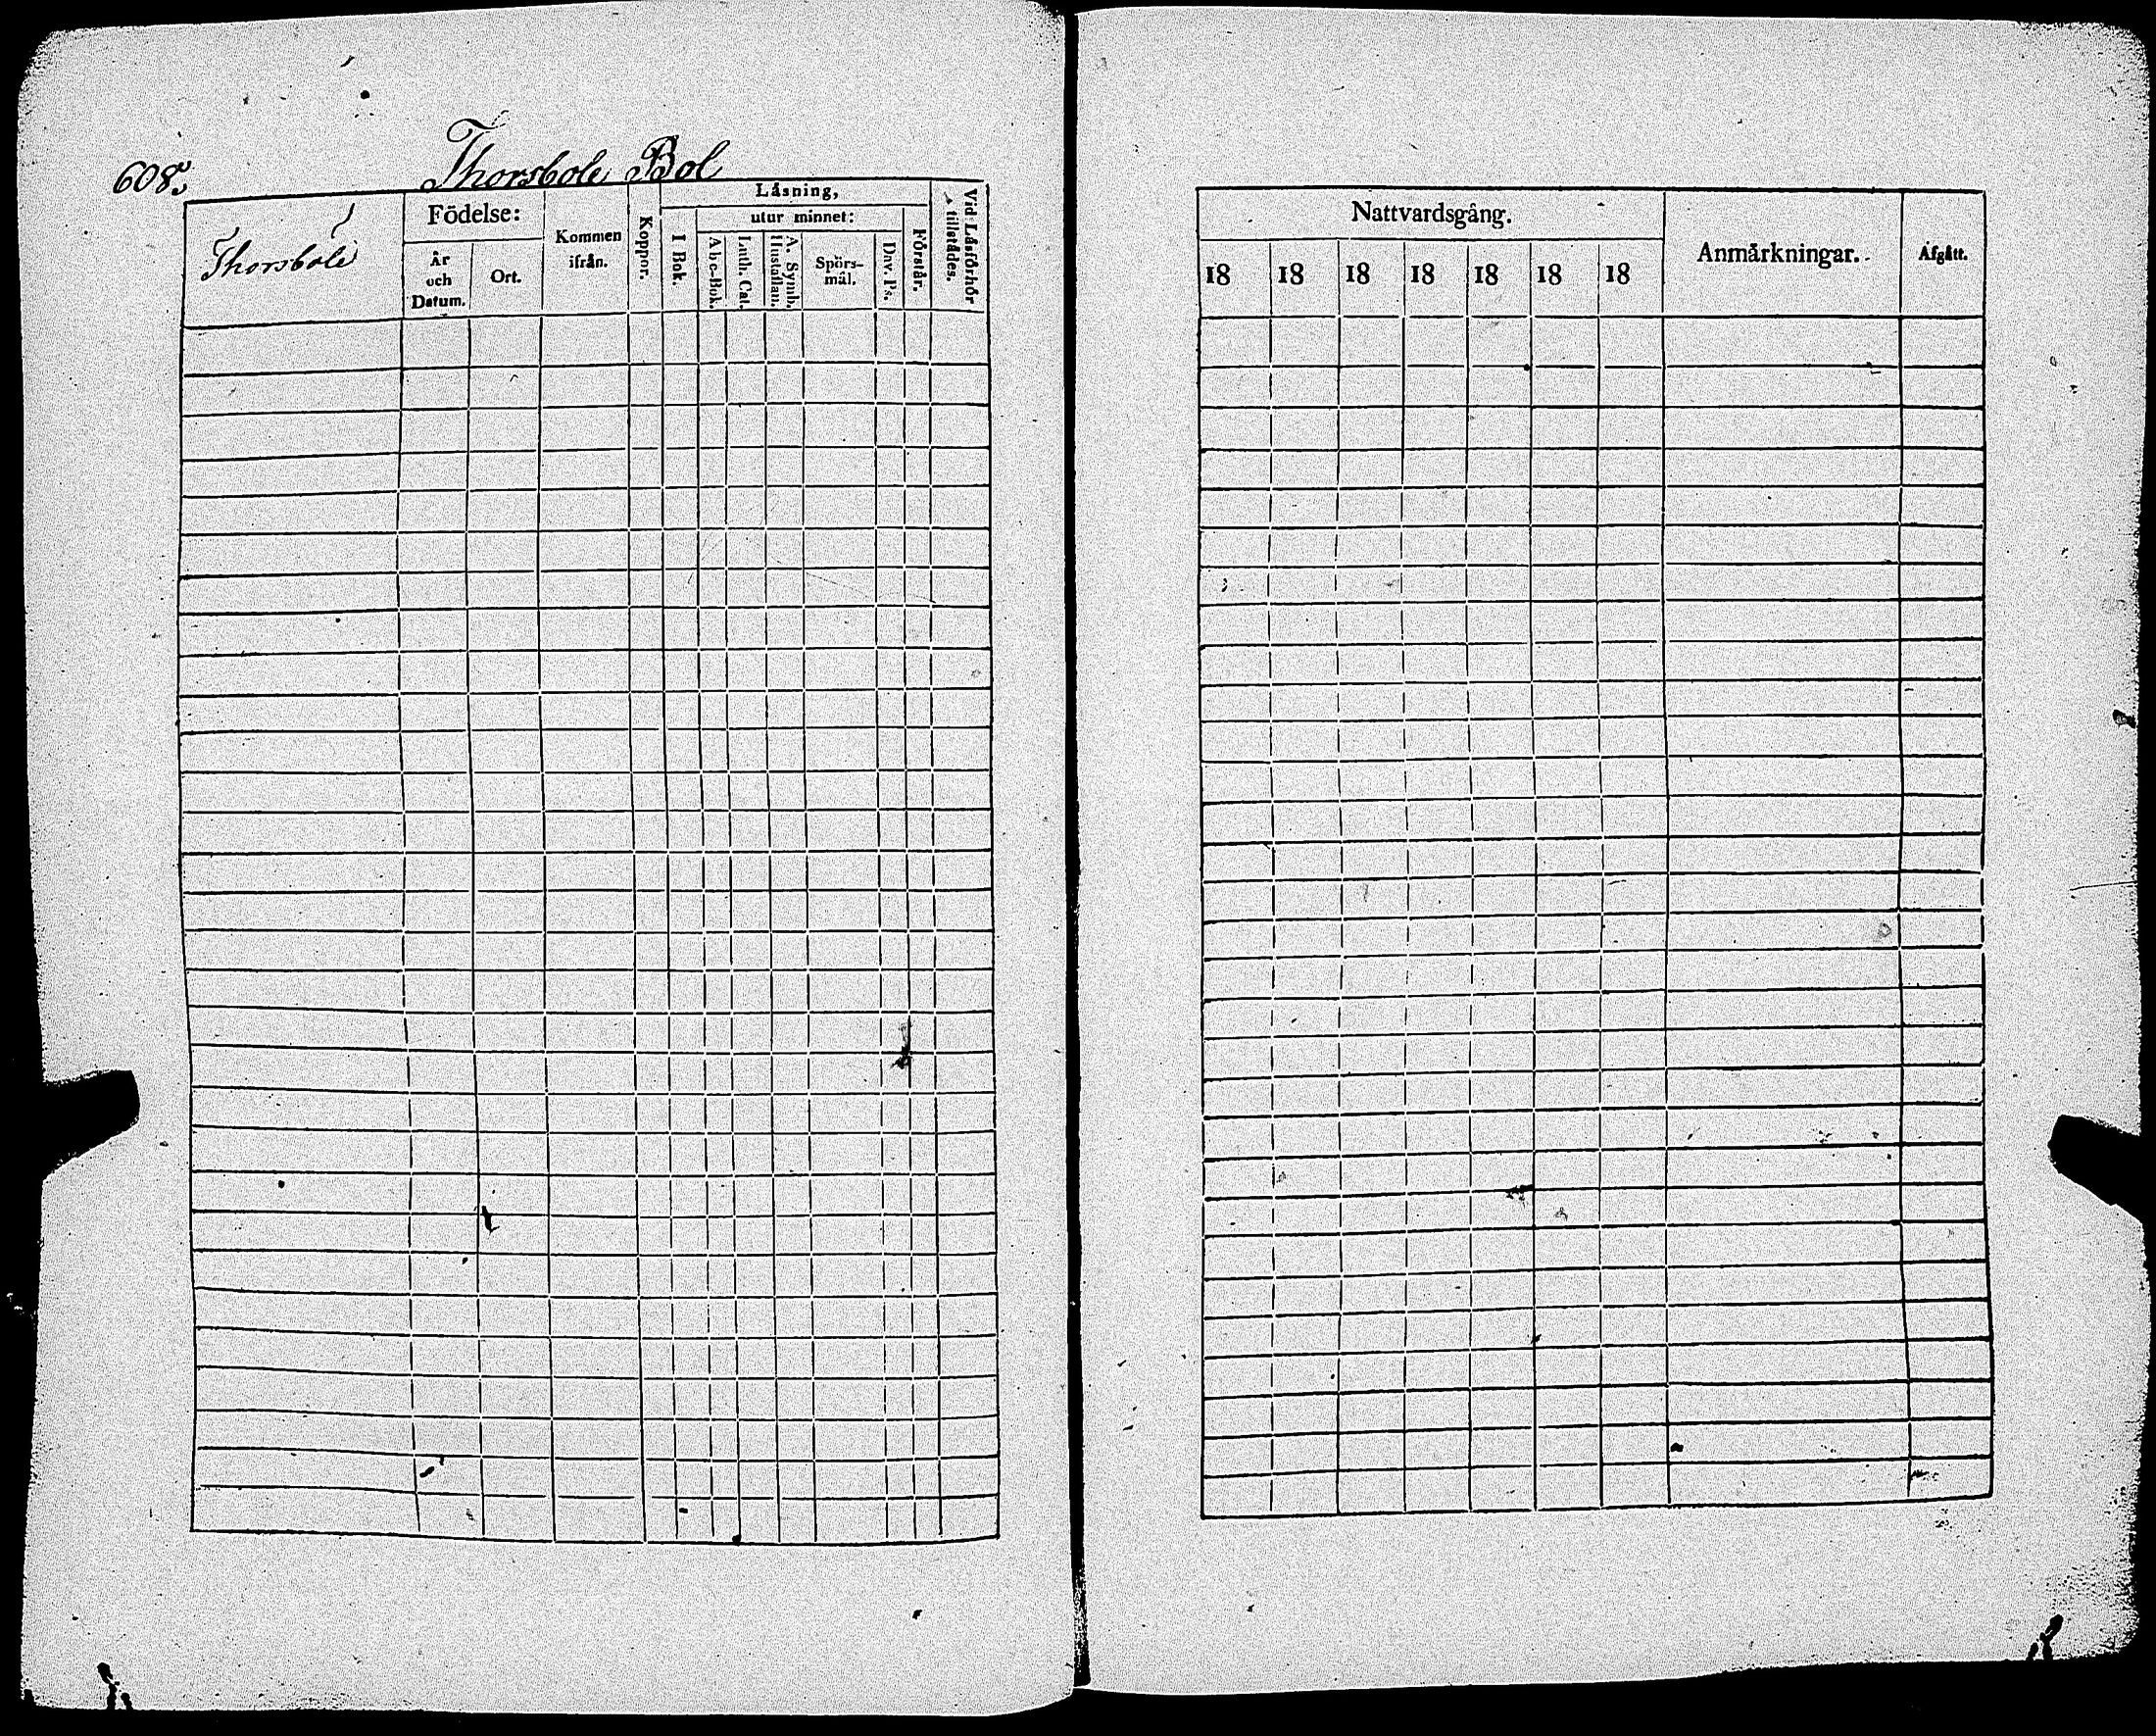 608.
Thorsbole Bol
Thorsbole
Födelse:
År och Datum.
Ort.
Kommen ifrån.
Koppor.
Läsning,
I Bok.
utur minnet:
Abc-Bok.
Luth. Cat.
A. Symb. Hustaflan.
Spörs-mål.
Dav. Ps.
Förstår.
Vid Läsförhör tillstädes.
Nattvardsgång.
18 18 18 18 18 18 18
Anmärkningar.
Afgått.